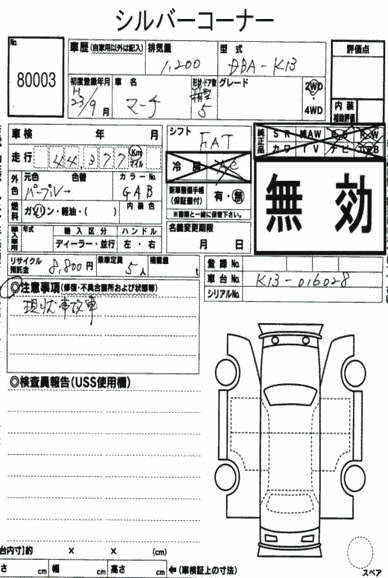 シルバーコーナー
No.
80003
車歴 (自家用以外は記入) 排気量 型式
1,200 DBA-K13
評価点
初度登録年月 車名 形状・ドア数 グレード
H 23/9月 マーチ 箱型 5
2WD
・
4WD
内装
補助評価
車検 年 月
シフト
FAT
純正品
SR 純AW
カワ TV ナビ
走行 44,377 Km マイル
冷房
外色 元色 色替 カラーNo
パープル GAB
新車整備手帳 (保証書付) 有・無
※書類と一緒に保管下さい。
無効
燃料 ガソリン・軽油・( ) 内装色
名義変更期限
月 日
輸入車用 年式 輸入区分 ハンドル
ディーラー・並行 左・右
リサイクル預託金 8,800円 乗車定員 5人 積載量 t
登録No.
車台No. K13-016028
シリアルNo.
◎注意事項 (修復・不具合箇所および状態等)
現状事故車
◎検査員報告(USS使用欄)
台内寸)約 × × (cm)
さ cm 幅 cm 高さ cm ←(車検証上の寸法)
スペア